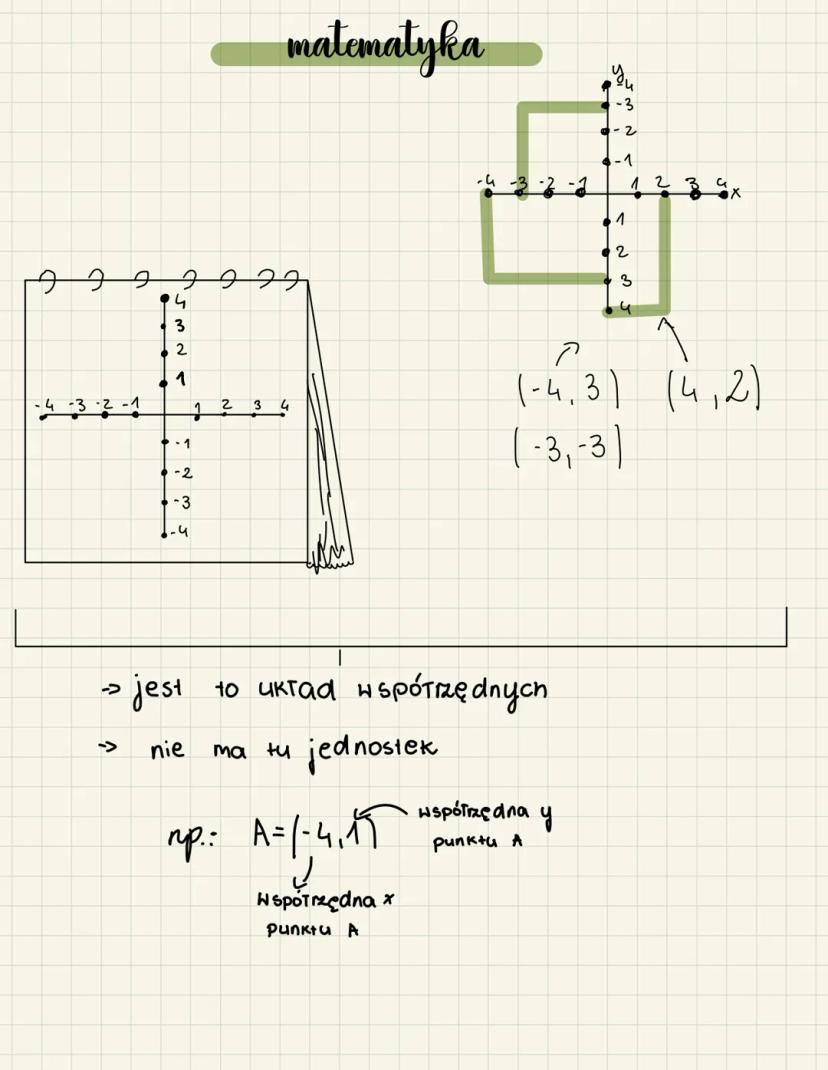 matematyka
y
-4
-3
-2
-1
-4 -3 -2 -1 1 2 3 4 x
1
2
3
4
(-4, 3) (4, 2)
(-3, -3)
4
3
2
1
-4 -3 -2 -1 1 2 3 4
-1
-2
-3
-4
-> jest to układ współrzędnych
-> nie ma tu jednostek
np.: A=(-4,1)
współrzędna y
punktu A
współrzędna x
punktu A